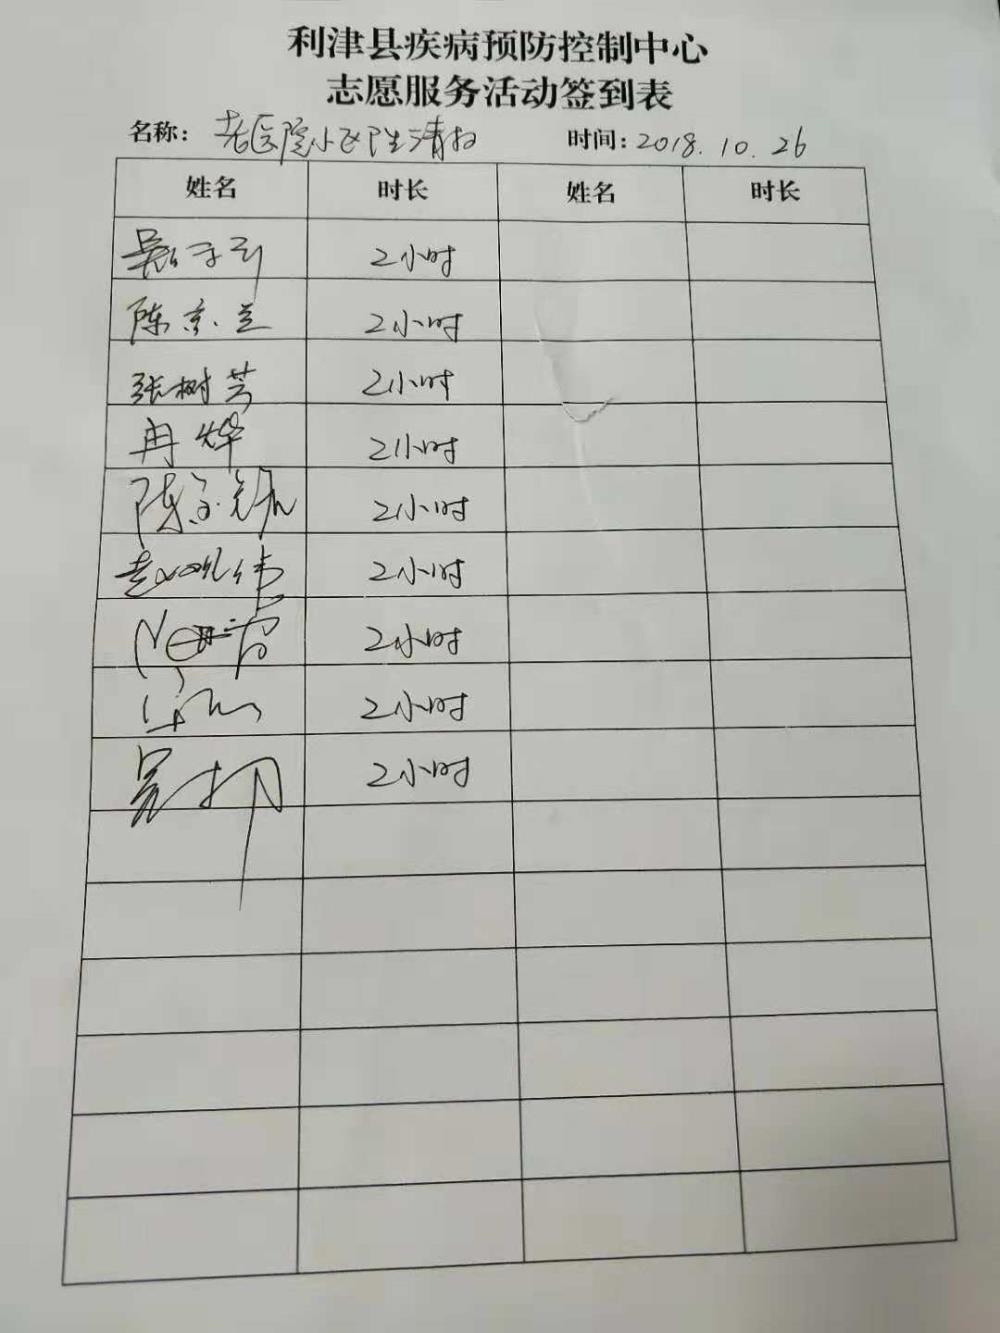 利津县疾病预防控制中心
志愿服务活动签到表
名称: 老医院小区卫生清扫 时间: 2018.10.26
姓名 时长 姓名 时长
2小时
陈京兰 2小时
张树芳 2小时
冉烨 2小时
陈 2小时
赵 伟 2小时
2小时
2小时
吴 2小时